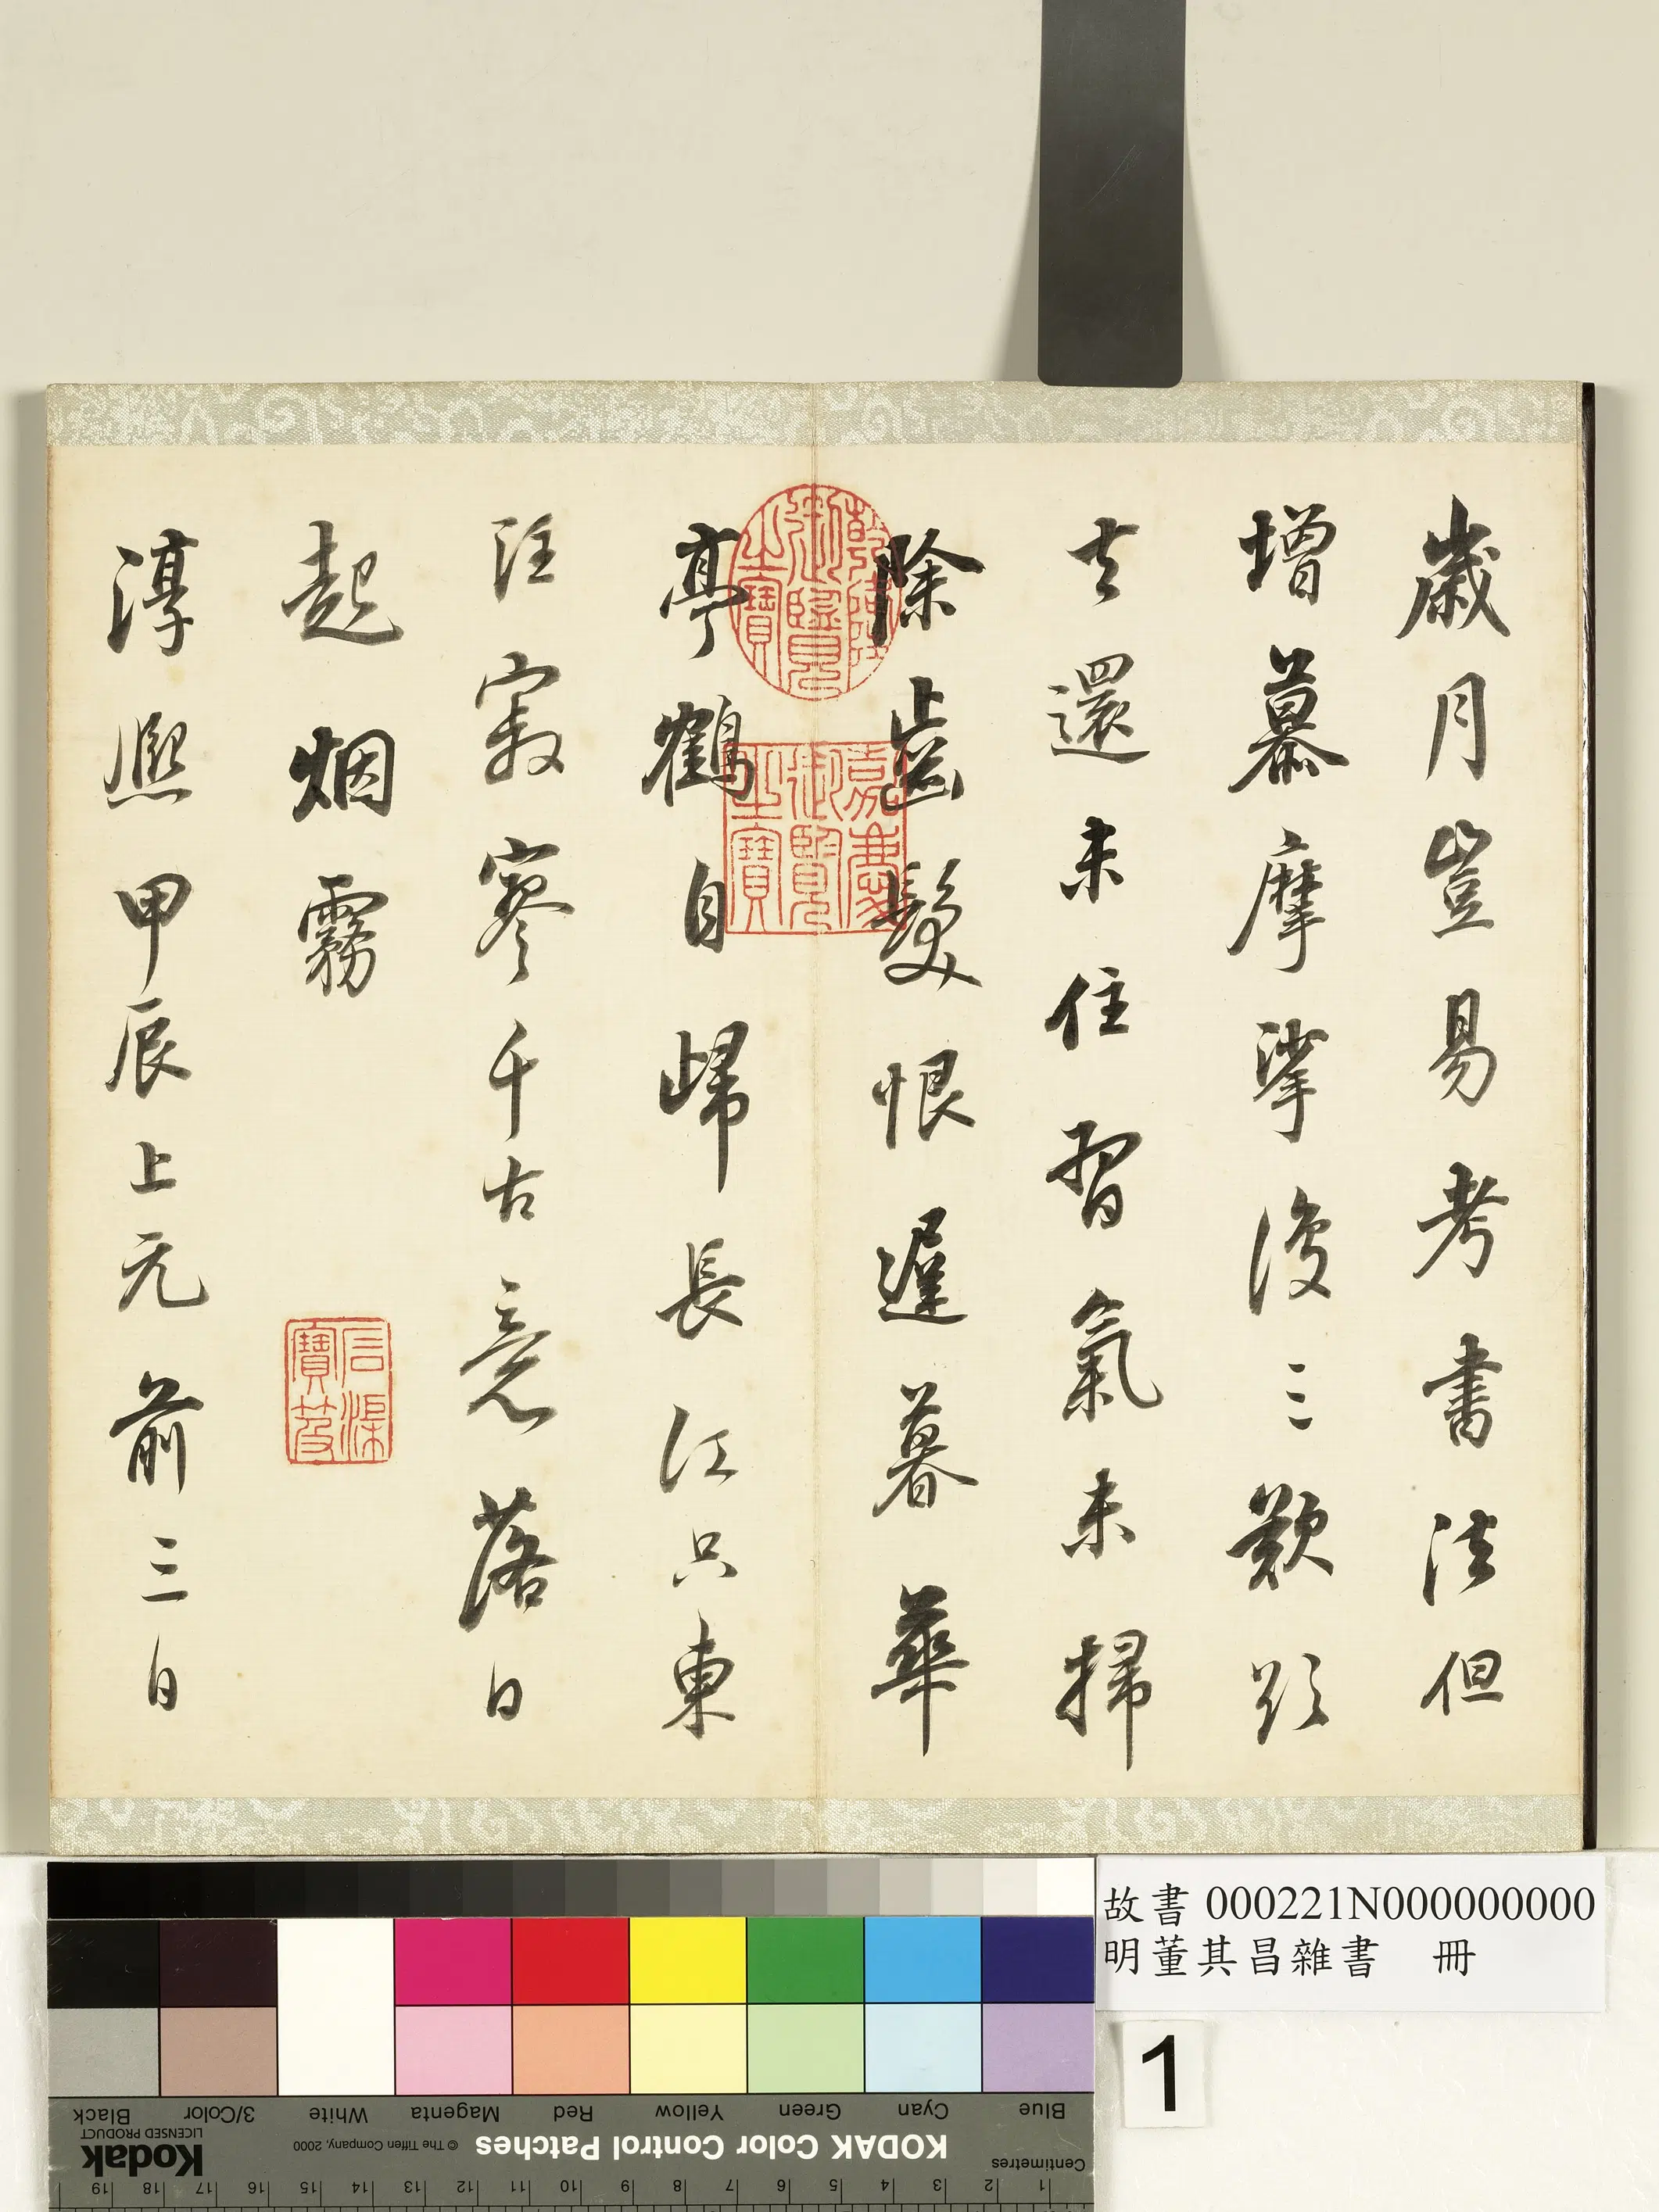 歲月豈易考書法但
增慕摩挲復三歎欲
去還未住習氣未掃
除齒髮恨遲暮華
亭鶴自歸長江只東
注寂寥千古意落日
起烟霧
淳熙甲辰上元前三日
乾隆御覽之寶
嘉慶御覽之寶
石渠寶笈
故書 000221N000000000
明董其昌雜書 冊
1
Blue Cyan Green Yellow Red Magenta White 3/Color Black
KODAK Color Control Patches
© The Tiffen Company, 2000
Kodak
LICENSED PRODUCT
Centimetres
1 2 3 4 5 6 7 8 9 10 11 12 13 14 15 16 17 18 19